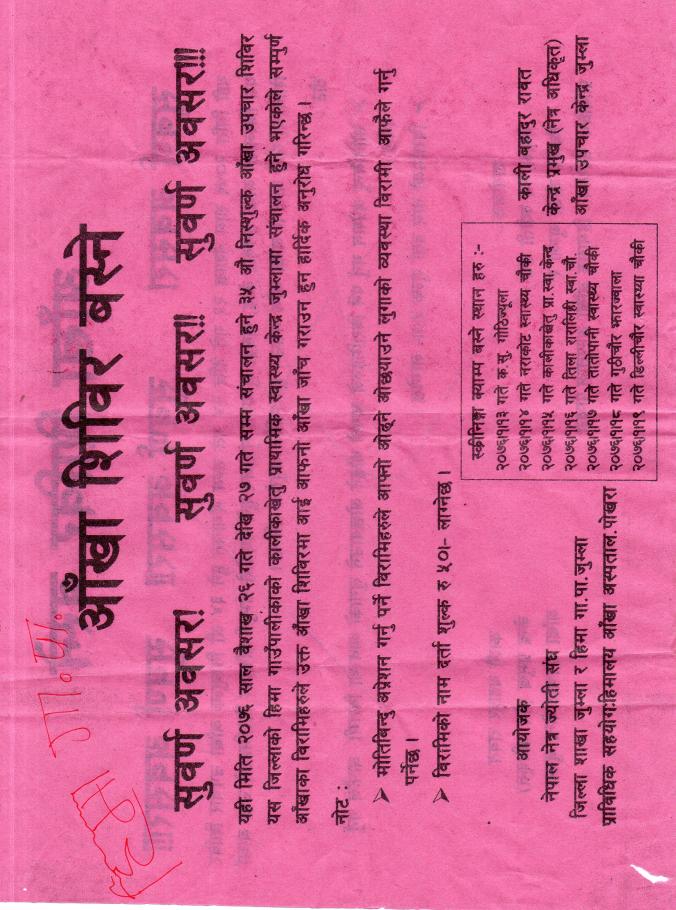 हिमा गा.पा.
आँखा शिविर बस्ने
सुवर्ण अवसर! सुवर्ण अवसर!! सुवर्ण अवसर!!!
यही मिति २०७६ साल बैशाख २६ गते देखि २७ गते सम्म संचालन हुने ३५ औ निस्शुल्क आँखा उपचार शिविर
यस जिल्लाको हिमा गाउँपालीकाको कालीकाखेतु प्राथामिक स्वास्थ्य केन्द्र जुम्लामा संचालन हुने भएकोले सम्पुर्ण
आँखाका विरामिहरुले उक्त आँखा शिविरमा आई आफनो आँखा जाँच गराउन हुन हार्दिक अनुरोध गरिन्छ ।
नोट :
➢ मोतिबिन्दु अप्रेशन गर्नु पर्ने विरामिहरुले आफ्नो ओढ्ने ओछयाउने लुगाको व्यवस्था विरामी आफैले गर्नु
पर्नेछ ।
➢ विरामिको नाम दर्ता शुल्क रु ५०।- लाग्नेछ ।
आयोजक
नेपाल नेत्र ज्योती संघ
जिल्ला शाखा जुम्ला र हिमा गा.पा.जुम्ला
प्राविधिक सहयोग:हिमालय आँखा अस्पताल.पोखरा
स्क्रीनिङ्ग क्याम्प बस्ने स्थान हरु :-
२०७६।१।१३ गते क.मु. गोठिज्यूला
२०७६।१।१४ गते नराकोट स्वास्थ्य चौकी
२०७६।१।१५ गते कालीकाखेतु प्रा.स्वा.केन्द
२०७६।१।१६ गते तिला रातुलिही स्वा.चौ.
२०७६।१।१७ गते तातोपानी स्वास्थ्य चौकी
२०७६।१।१८ गते गुठीचौर झारज्वाला
२०७६।१।१९ गते डिल्लीचौर स्वास्थ्या चौकी
काली बहादुर रावत
केन्द्र प्रमुख (नेत्र अधिकृत)
आँखा उपचार केन्द्र जुम्ला